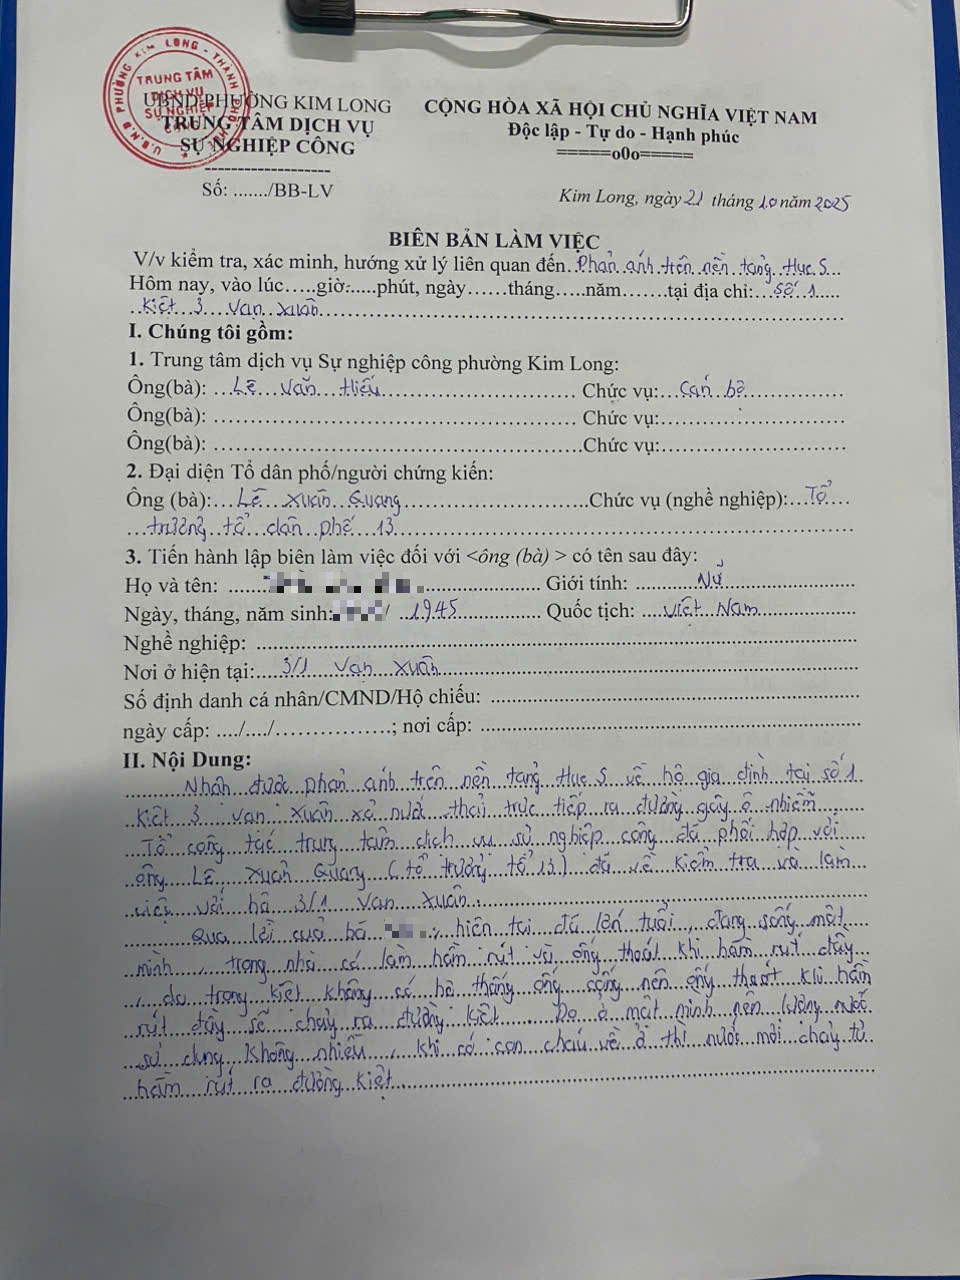 U.B.N.D PHƯỜNG KIM LONG - THÀNH PHỐ HUẾ
TRUNG TÂM
DỊCH VỤ
SỰ NGHIỆP
CÔNG
UBND PHƯỜNG KIM LONG
TRUNG TÂM DỊCH VỤ
SỰ NGHIỆP CÔNG
-------------------
Số: ......./BB-LV
CỘNG HÒA XÃ HỘI CHỦ NGHĨA VIỆT NAM
Độc lập - Tự do - Hạnh phúc
=====o0o=====
Kim Long, ngày 21 tháng 10 năm 2025
BIÊN BẢN LÀM VIỆC
V/v kiểm tra, xác minh, hướng xử lý liên quan đến..Phản ánh trên nền tảng Hue.S...
Hôm nay, vào lúc.....giờ......phút, ngày......tháng.....năm.......tại địa chỉ:...số 1.....
..Kiệt 3 Vạn Xuân..........
I. Chúng tôi gồm:
1. Trung tâm dịch vụ Sự nghiệp công phường Kim Long:
Ông(bà): ...Lê Văn Hiếu.......... Chức vụ:...Cán bộ..........
Ông(bà): .......... Chức vụ:..........
Ông(bà): ..........Chức vụ:..........
2. Đại diện Tổ dân phố/người chứng kiến:
Ông (bà):...Lê Xuân Quang..........Chức vụ (nghề nghiệp):..Tổ...
...trưởng tổ dân phố 13..........
3. Tiến hành lập biên làm việc đối với <ông (bà) > có tên sau đây:
Họ và tên: .......... Giới tính: .....Nữ..........
Ngày, tháng, năm sinh: / ..1945.......... Quốc tịch: ...Việt Nam..........
Nghề nghiệp: ..........
Nơi ở hiện tại:....3/1 Vạn Xuân..........
Số định danh cá nhân/CMND/Hộ chiếu: ..........
ngày cấp: ..../..../................; nơi cấp: ..........
II. Nội Dung:
Nhận được phản ánh trên nền tảng Hue.S về hộ gia đình tại số 1
Kiệt 3 Vạn Xuân xả nước thải trực tiếp ra đường gây ô nhiễm
Tổ công tác trung tâm dịch vụ sự nghiệp công đã phối hợp với
ông Lê Xuân Quang (tổ trưởng tổ 13) đã về kiểm tra và làm
việc với hộ 3/1 Vạn Xuân.
Qua lời của bà , hiện tại đã lớn tuổi, đang sống một
mình, trong nhà có làm hầm rút và ống thoát khi hầm rút đầy
, do trong kiệt không có hệ thống ống cống nên ống thoát khi hầm
rút đầy sẽ chảy ra đường kiệt. Do ở một mình nên lượng nước
sử dụng không nhiều, khi có con cháu về ở thì nước mới chảy từ
hầm rút ra đường kiệt